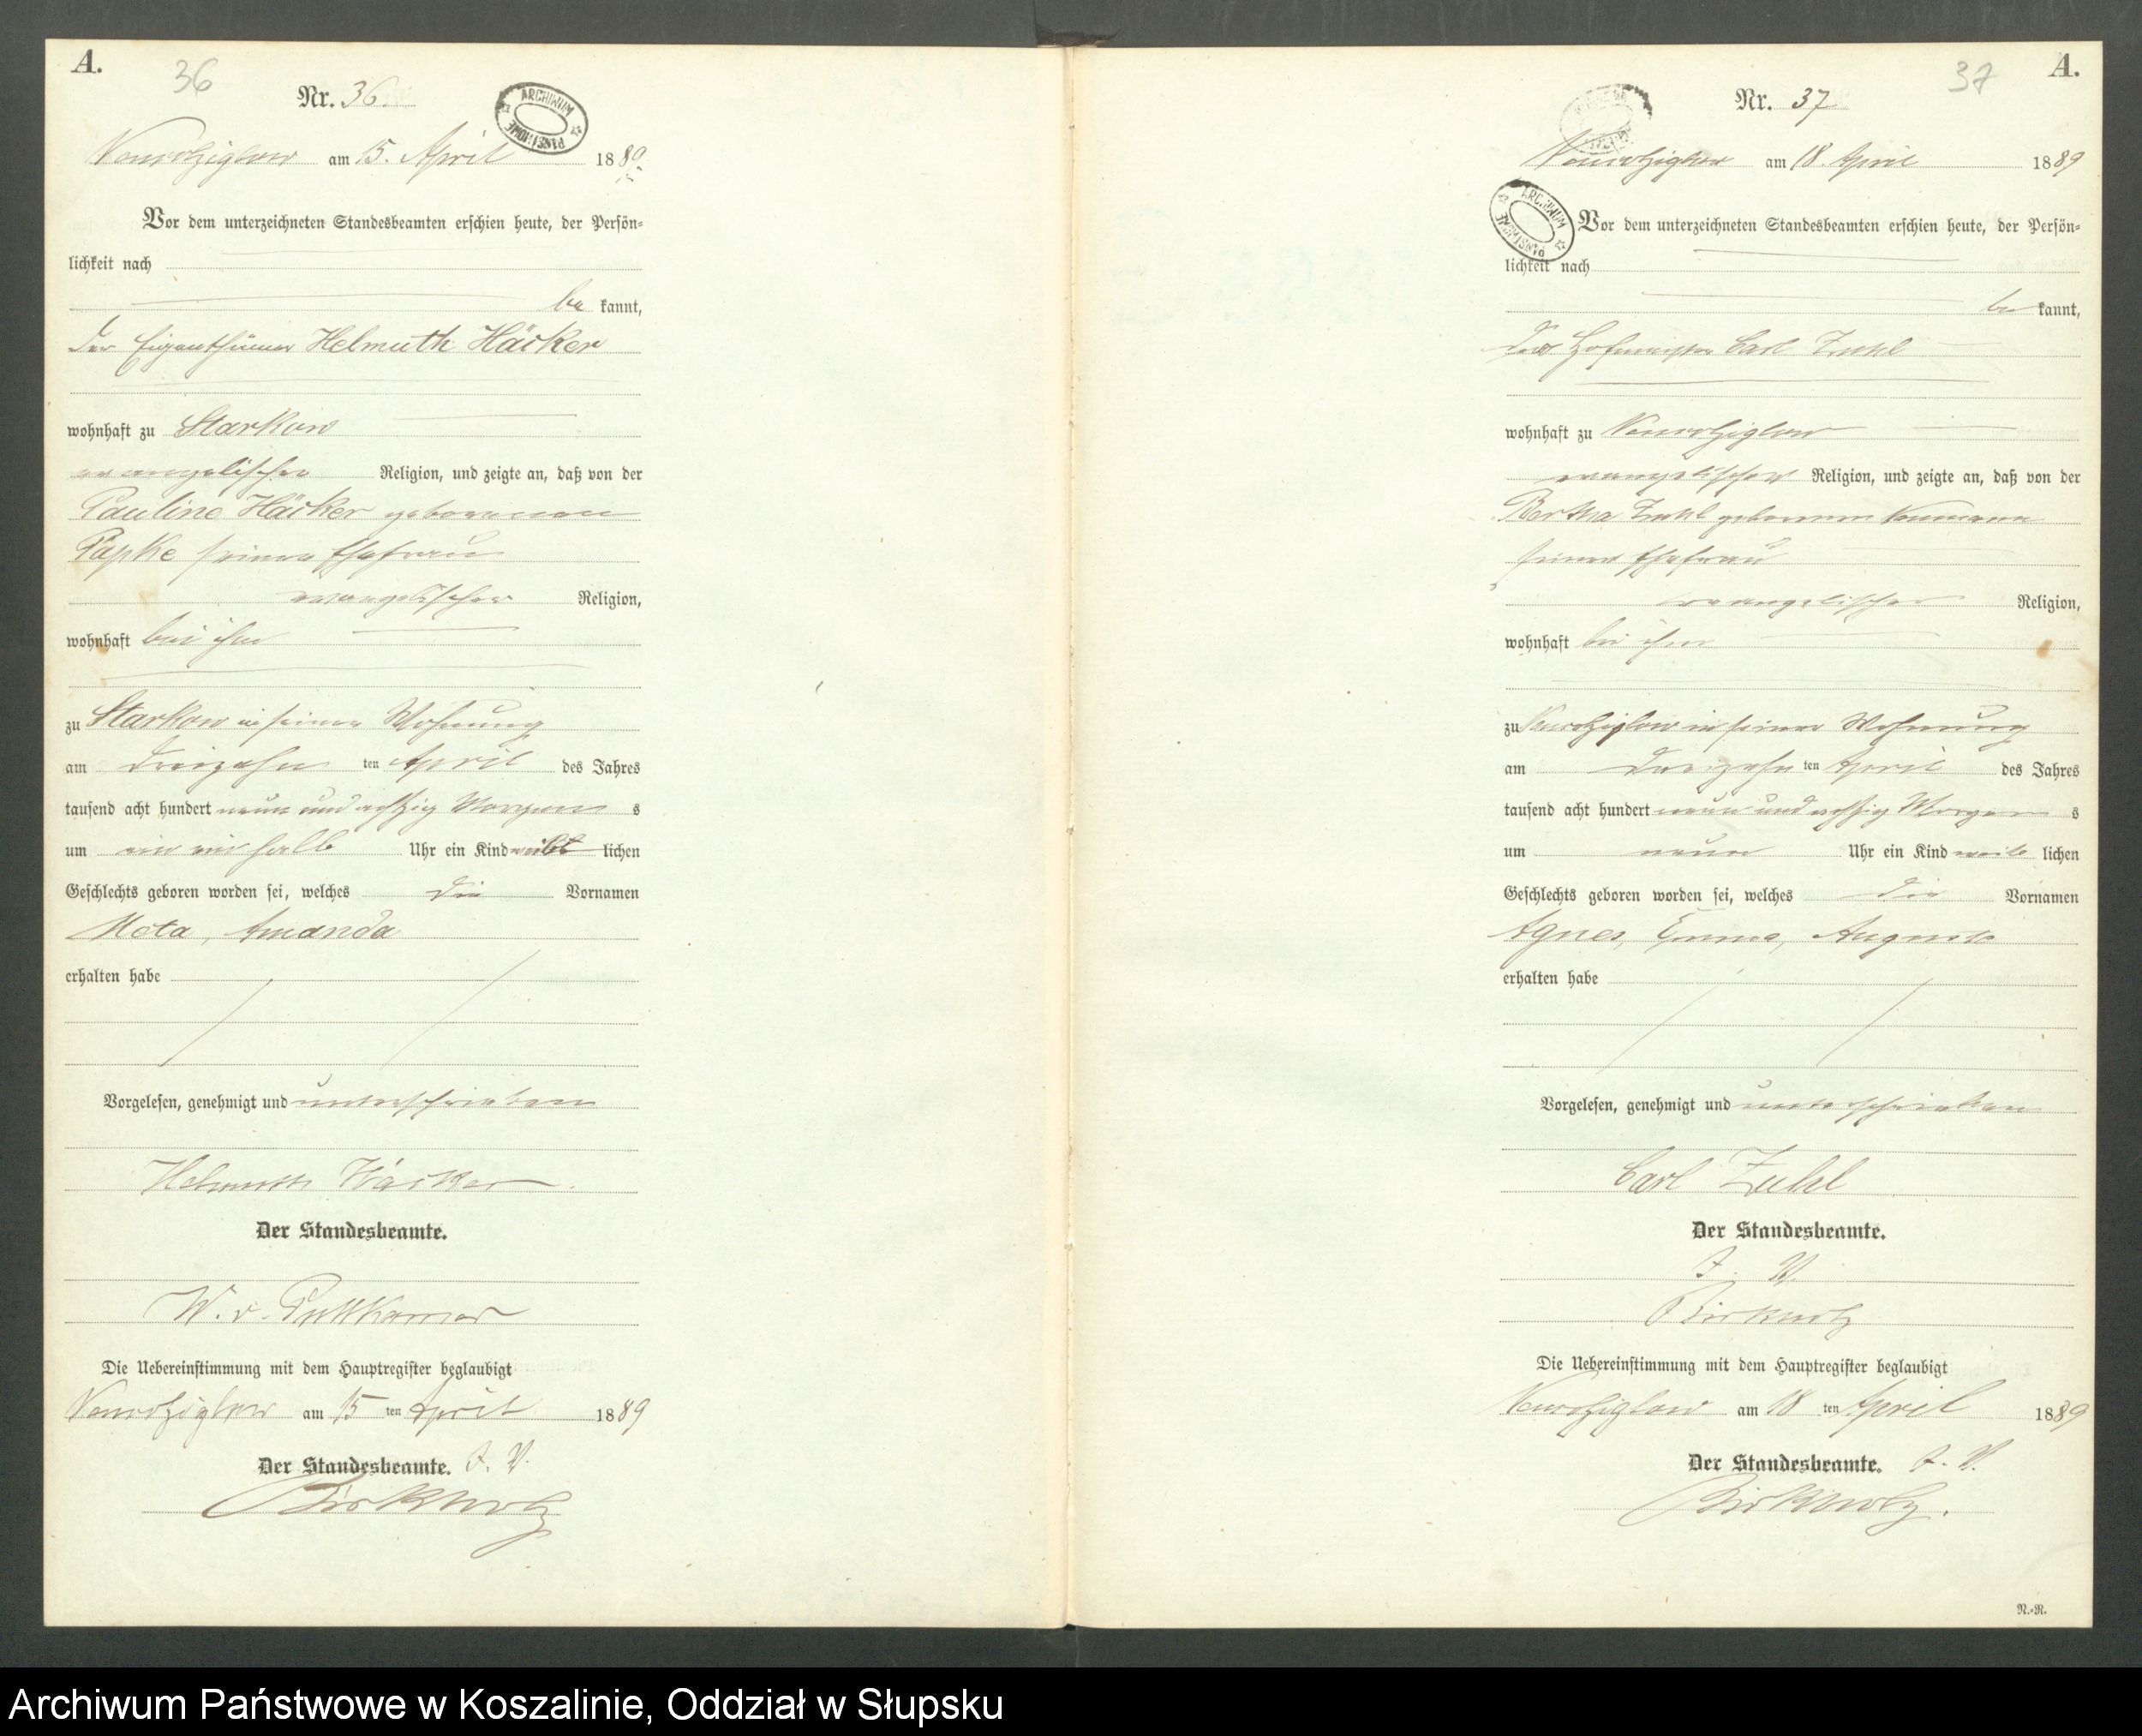 A.
36
Nr. 36.
ARCHIWUM PAŃSTWOWE
am 15. April 1889
Vor dem unterzeichneten Standesbeamten erschien heute, der Persön-
lichkeit nach
be kannt,
der Eigenthümer Helmuth Häcker
wohnhaft zu Starkow
evangelischer Religion, und zeigte an, daß von der
Pauline Häcker geborenen
Papke seiner Ehefrau
evangelischer Religion,
wohnhaft bei ihm
zu Starkow in seiner Wohnung
am dreizehn ten April des Jahres
tausend acht hundert neun und achtzig Morgens
um ein ein halb Uhr ein Kind weiblichen
Geschlechts geboren worden sei, welches die Vornamen
Meta, Amanda
erhalten habe
Vorgelesen, genehmigt und unterschrieben
Helmuth Häcker.
Der Standesbeamte.
W. v. Puttkamer
Die Uebereinstimmung mit dem Hauptregister beglaubigt
am 15 ten April 1889
Der Standesbeamte. I. V.
A.
37
Nr. 37
am 18. April 1889
ARCHIWUM PAŃSTWOWE
Vor dem unterzeichneten Standesbeamten erschien heute, der Persön-
lichkeit nach
be kannt,
der Hofmeister Carl Zuhl
wohnhaft zu
evangelischer Religion, und zeigte an, daß von der
Bertha Zuhl geborenen Naumann
seiner Ehefrau
evangelischer Religion,
wohnhaft bei ihm
zu in seiner Wohnung
am dreizehn ten April des Jahres
tausend acht hundert neun und achtzig Morgens
um neun Uhr ein Kind weiblichen
Geschlechts geboren worden sei, welches die Vornamen
Agnes, Emma, Auguste
erhalten habe
Vorgelesen, genehmigt und unterschrieben
Carl Zuhl
Der Standesbeamte.
I. V.
Die Uebereinstimmung mit dem Hauptregister beglaubigt
am 18 ten April 1889
Der Standesbeamte. I. V.
N.-R.
Archiwum Państwowe w Koszalinie, Oddział w Słupsku